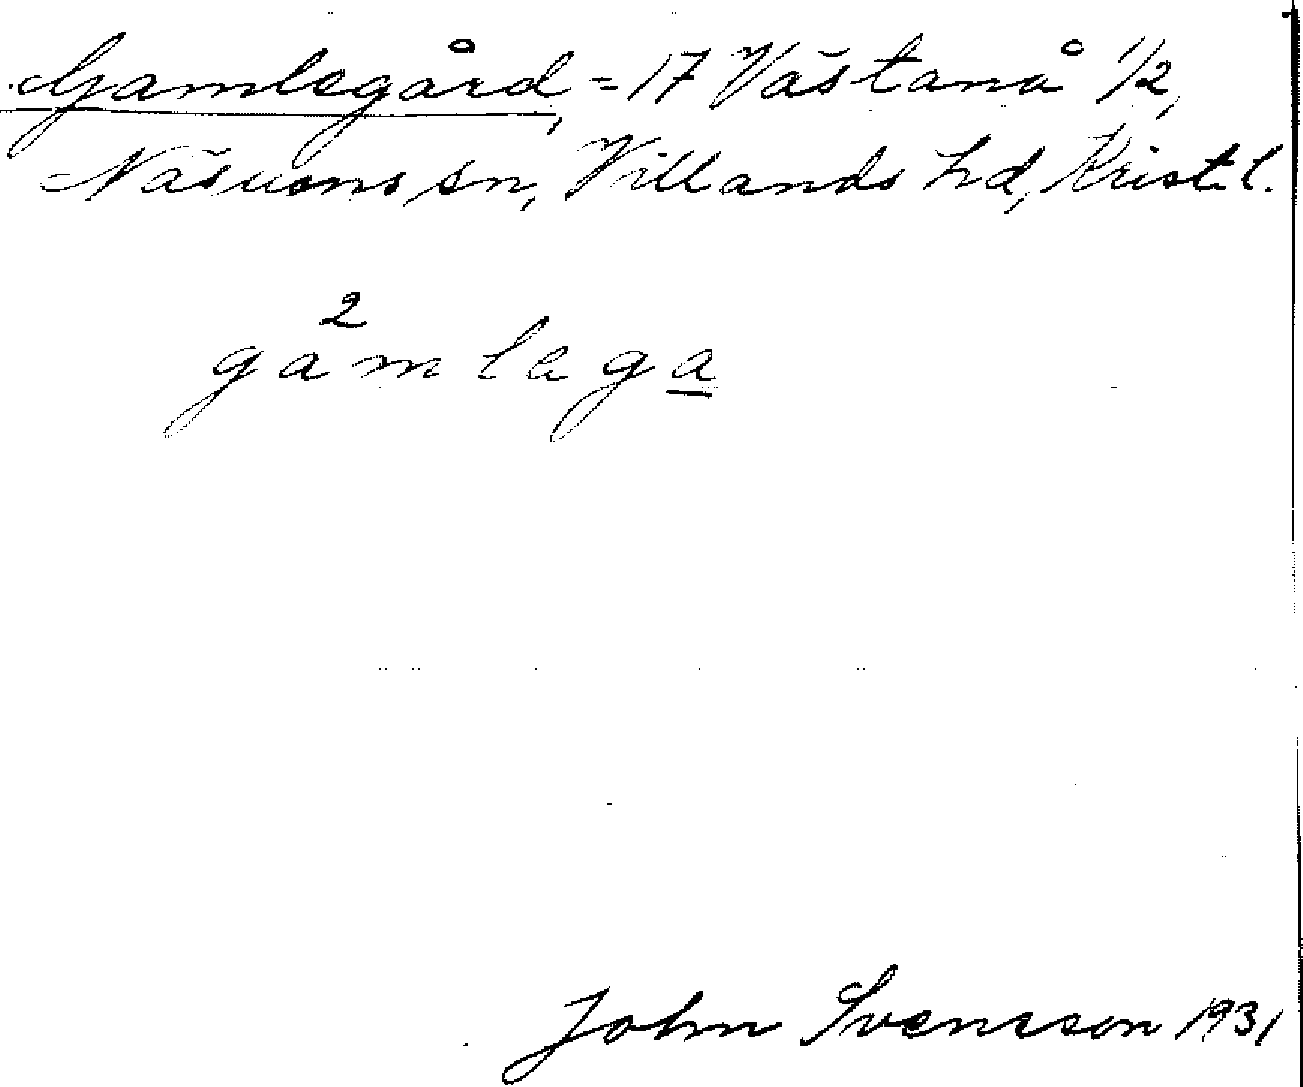 Gamlegård, = 17 Västanå 1/2,
Näsums sn, Villands hd, Krist. l.
2
gamlega
John Svensson 1931